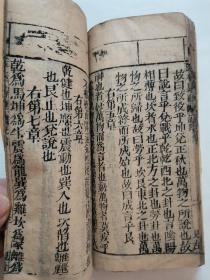 故曰致役乎坤兌正秋也萬物之所說也故
曰說言乎兌戰乎乾乾西北之卦也言陰陽
相薄也坎者水也正北方之卦也勞卦也萬
物之所歸也故曰勞乎坎艮東北之卦也萬
物之所成終而所成始也故曰成言乎艮
右第六章
乾健也坤順也震動也巽入也坎陷也離麗
也艮止也兌說也
右第七章
乾為馬坤為牛震為龍巽為雞坎為豕離為